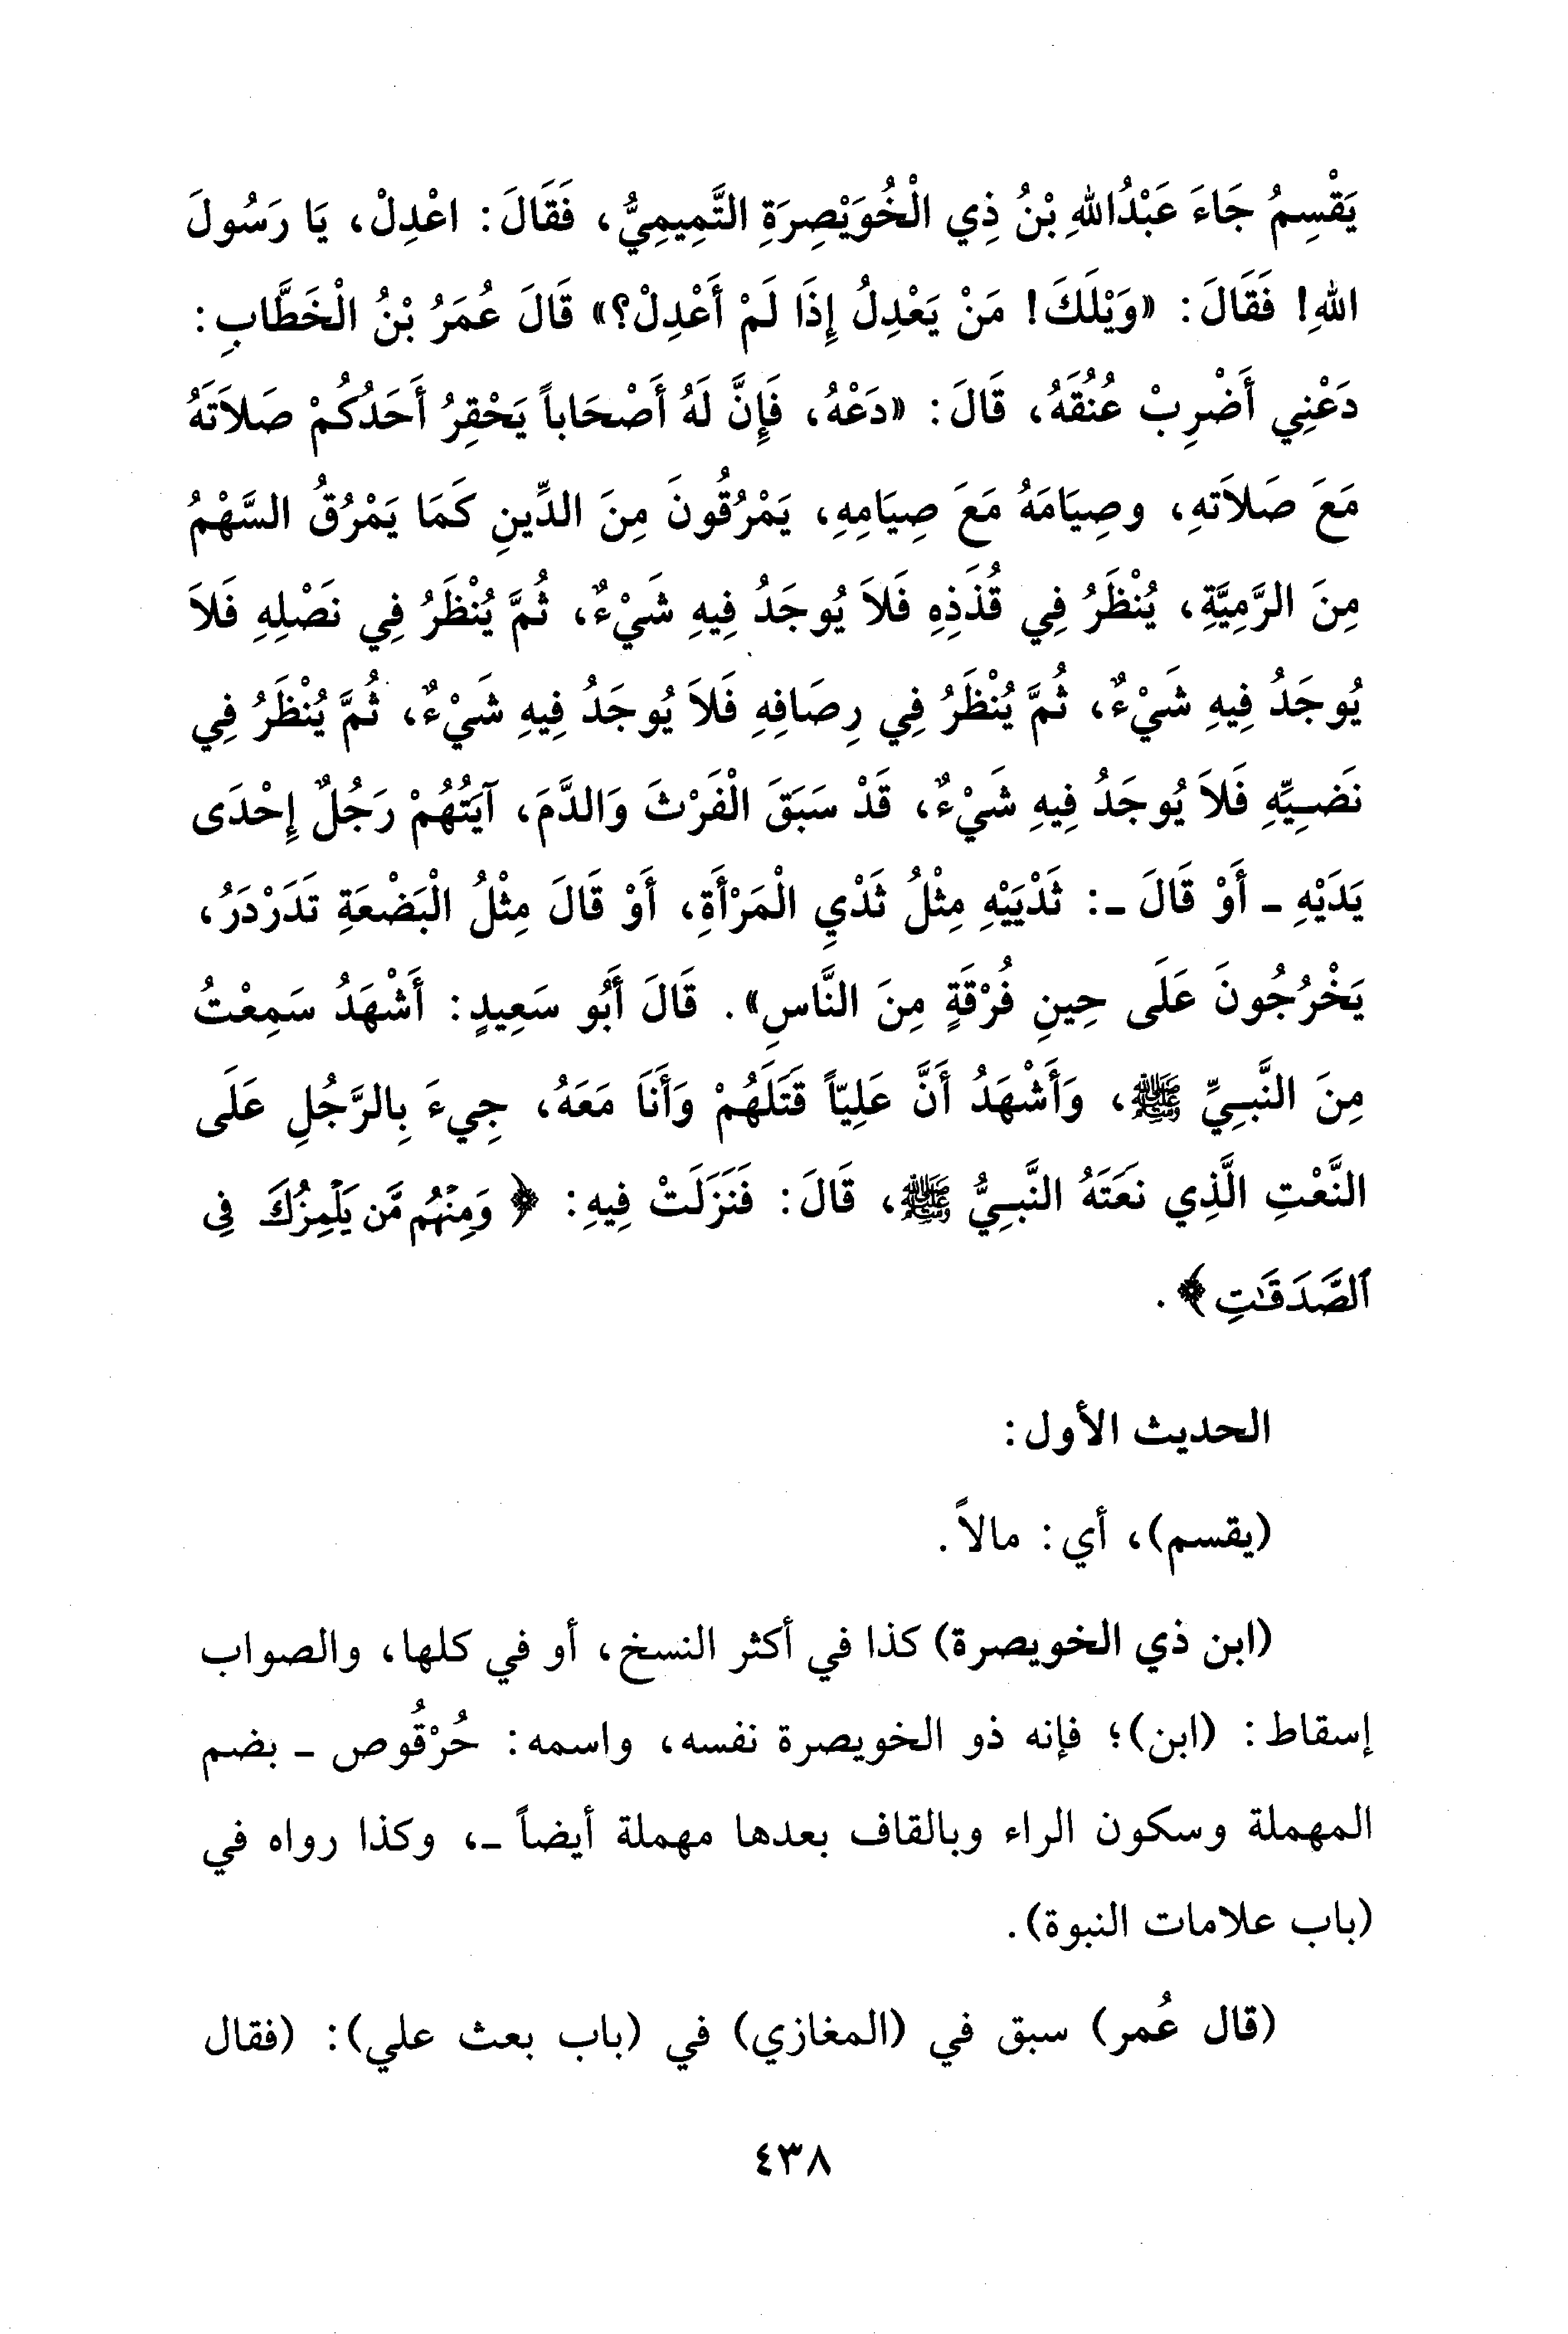 يَقْسِمُ جَاءَ عَبْدُاللهِ بْنُ ذِي الْخُوَيْصِرَةِ التَّمِيمِيُّ، فَقَالَ: اعْدِلْ، يَا رَسُولَ
اللهِ! فَقَالَ: «وَيْلَكَ! مَنْ يَعْدِلُ إِذَا لَمْ أَعْدِلْ؟» قَالَ عُمَرُ بْنُ الْخَطَّابِ:
دَعْنِي أَضْرِبْ عُنُقَهُ، قَالَ: «دَعْهُ، فَإِنَّ لَهُ أَصْحَاباً يَحْقِرُ أَحَدُكُمْ صَلاَتَهُ
مَعَ صَلاَتهِ، وصِيَامَهُ مَعَ صِيَامِهِ، يَمْرُقُونَ مِنَ الدِّينِ كَمَا يَمْرُقُ السَّهْمُ
مِنَ الرَّمِيَّةِ، يُنْظَرُ فِي قُذَذِهِ فَلاَ يُوجَدُ فِيهِ شَيْءٌ، ثُمَّ يُنْظَرُ فِي نَصْلِهِ فَلاَ
يُوجَدُ فِيهِ شَيْءٌ، ثُمَّ يُنْظَرُ فِي رِصَافِهِ فَلاَ يُوجَدُ فِيهِ شَيْءٌ، ثُمَّ يُنْظَرُ فِي
نَضِيِّهِ فَلاَ يُوجَدُ فِيهِ شَيْءٌ، قَدْ سَبَقَ الْفَرْثَ وَالدَّمَ، آيَتُهُمْ رَجُلٌ إِحْدَى
يَدَيْهِ - أَوْ قَالَ -: ثَدْيَيْهِ مِثْلُ ثَدْيِ الْمَرْأَةِ، أَوْ قَالَ مِثْلُ الْبَضْعَةِ تَدَرْدَرُ،
يَخْرُجُونَ عَلَى حِينِ فُرْقَةٍ مِنَ النَّاسِ». قَالَ أَبُو سَعِيدٍ: أَشْهَدُ سَمِعْتُ
مِنَ النَّبِيِّ ﷺ، وَأَشْهَدُ أَنَّ عَلِيّاً قَتَلَهُمْ وَأَنَا مَعَهُ، جِيءَ بِالرَّجُلِ عَلَى
النَّعْتِ الَّذِي نَعَتَهُ النَّبِيُّ ﷺ، قَالَ: فَنَزَلَتْ فِيهِ: ﴿وَمِنْهُم مَّن يَلْمِزُكَ فِى
ٱلصَّدَقَٰتِ﴾.
الحديث الأول:
(يقسم)، أي: مالاً.
(ابن ذي الخويصرة) كذا في أكثر النسخ، أو في كلها، والصواب
إسقاط: (ابن)؛ فإنه ذو الخويصرة نفسه، واسمه: حُرْقُوص - بضم
المهملة وسكون الراء وبالقاف بعدها مهملة أيضاً -، وكذا رواه في
(باب علامات النبوة).
(قال عُمر) سبق في (المغازي) في (باب بعث علي): (فقال
٤٣٨